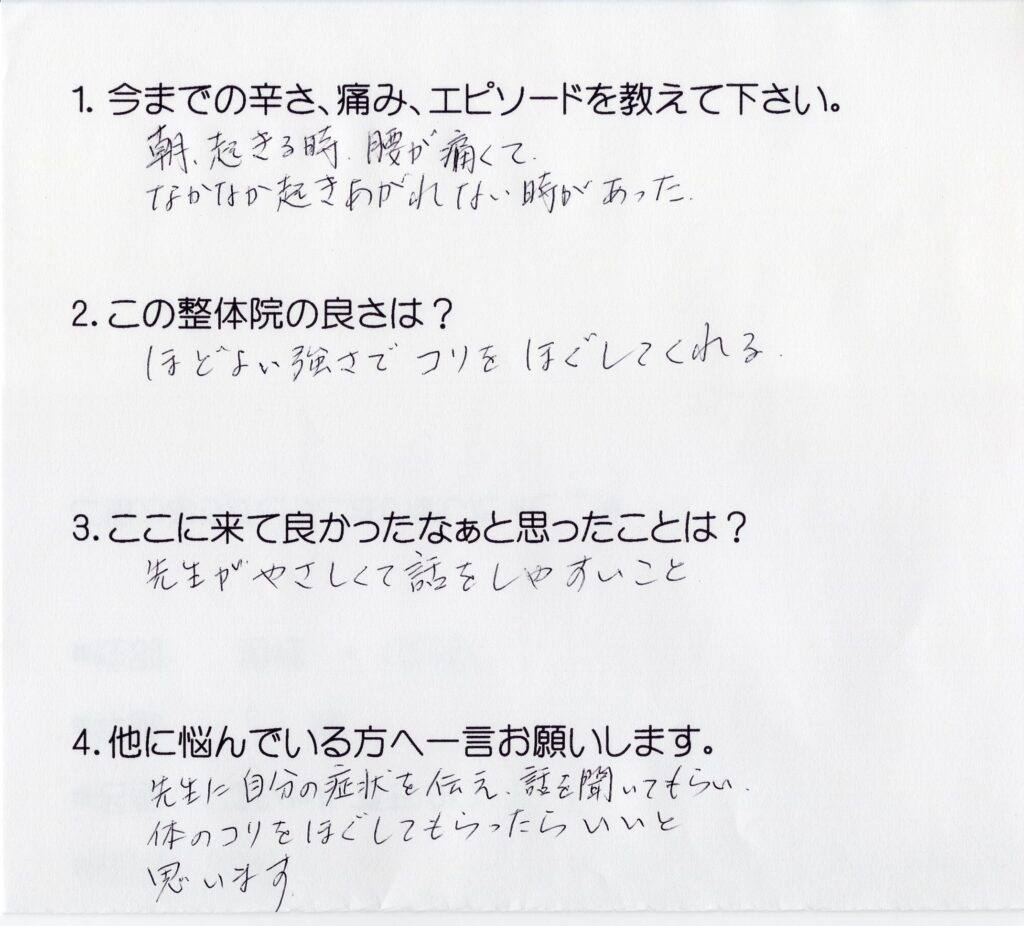 1. 今までの辛さ、痛み、エピソードを教えて下さい。
朝、起きる時、腰が痛くて、
なかなか起きあがれない時があった。
2. この整体院の良さは？
ほどよい強さでコリをほぐしてくれる。
3. ここに来て良かったなぁと思ったことは？
先生がやさしくて話をしやすいこと
4. 他に悩んでいる方へ一言お願いします。
先生に自分の症状を伝え、話を聞いてもらい、
体のコリをほぐしてもらったらいいと
思います